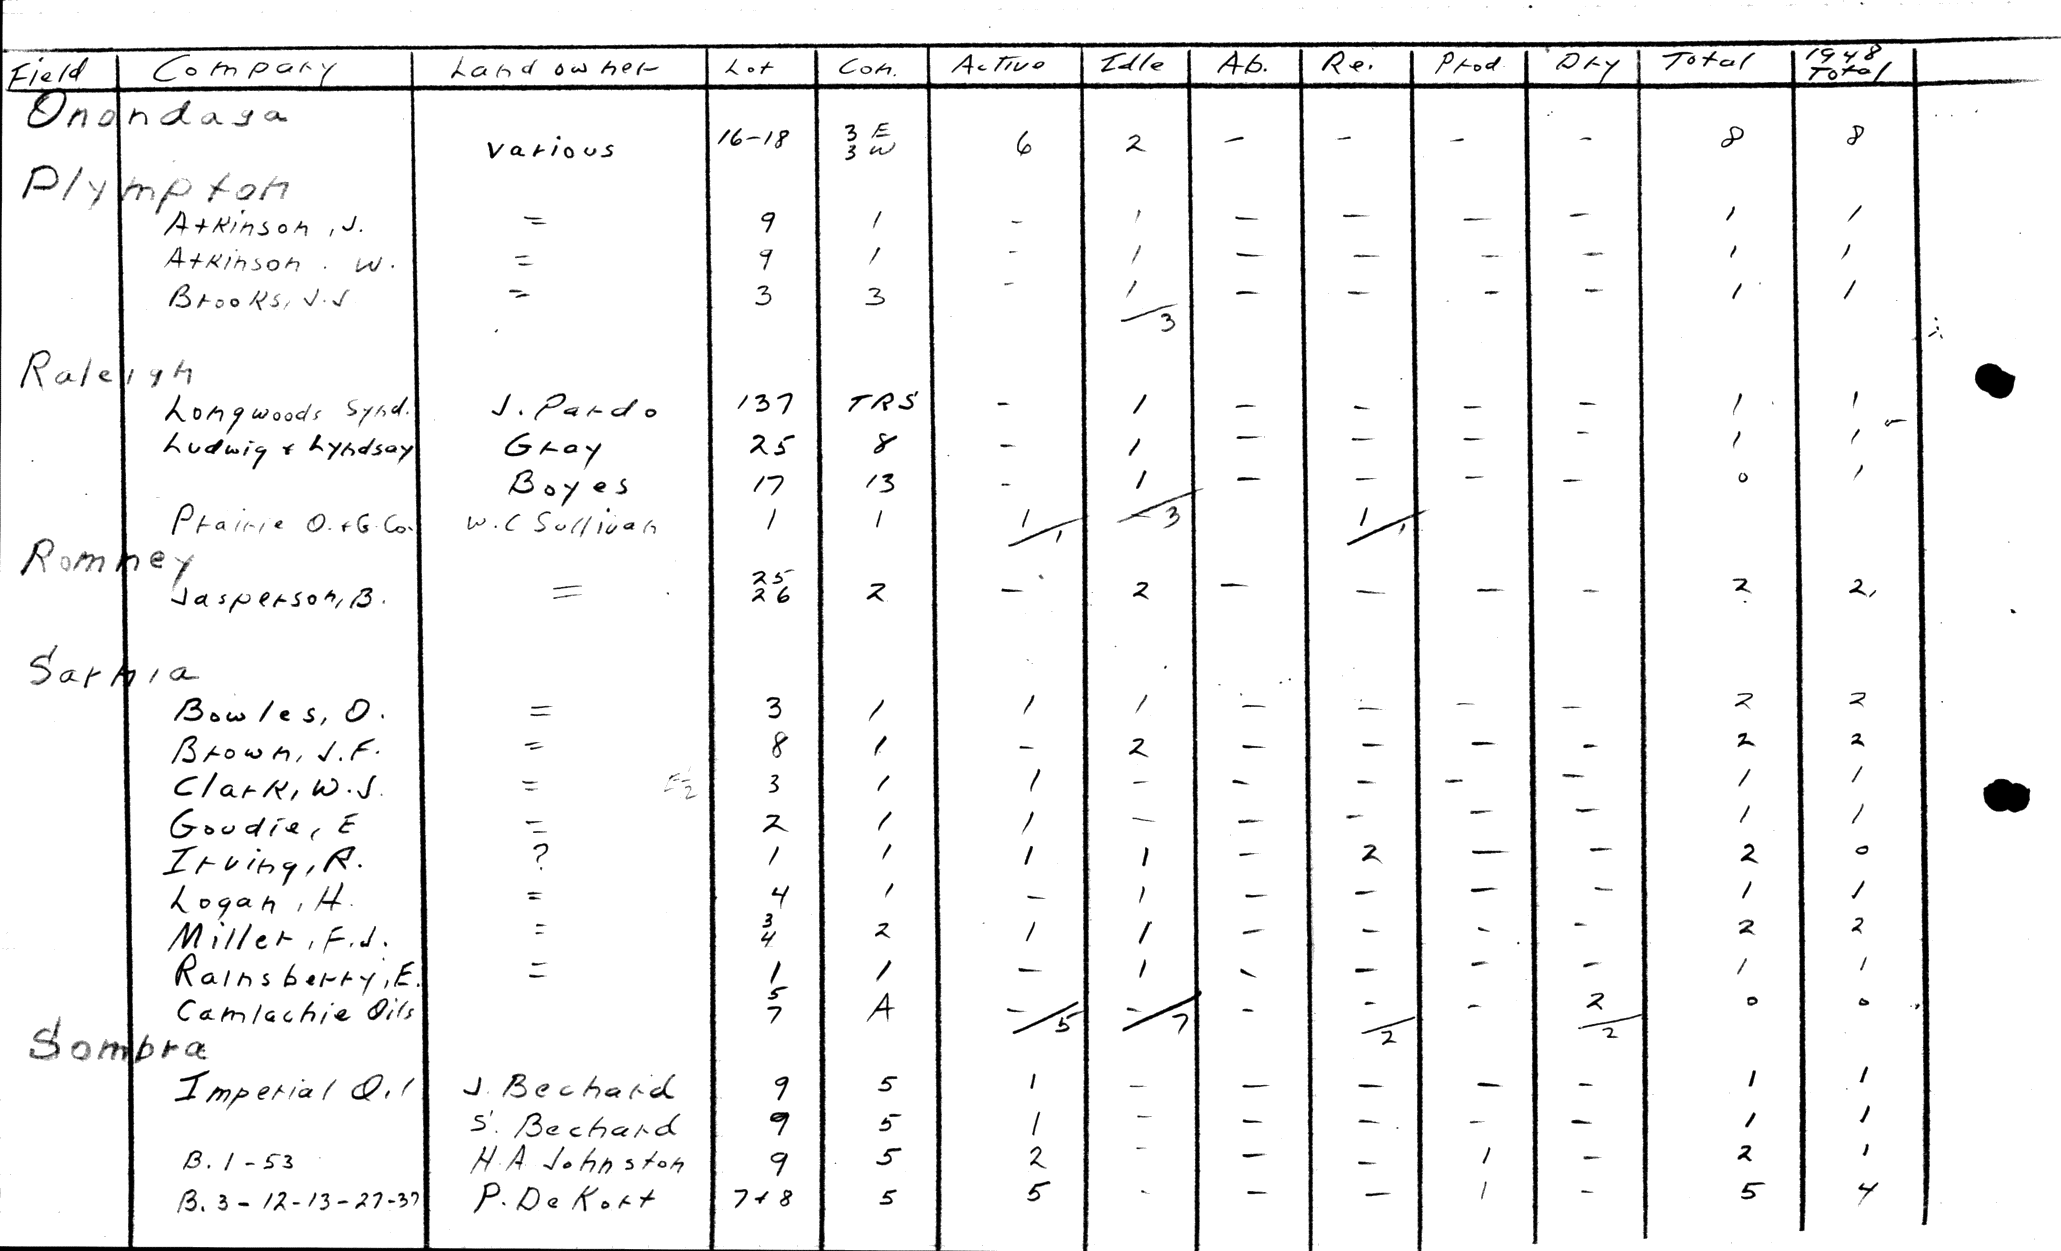 Field Company Landowner Lot Con. Active Idle Ab. Re. Prod. Dry Total 1948 Total
Onondaga
various 16-18 3 E 3 W 6 2 - - - - 8 8
Plympton
Atkinson, J. = 9 1 - 1 - - - - 1 1
Atkinson. W. = 9 1 - 1 - - - - 1 1
Brooks, J.J = 3 3 - 1 - - - - 1 1
3
Raleigh
Longwoods Synd. J. Pardo 137 TRS - 1 - - - - 1 1
Ludwig & Lyndsay Gray 25 8 - 1 - - - - 1 1
Boyes 17 13 - 1 - - - - 0 1
Prairie O. & G. Co. W. C Sullivan 1 1 1/1 -/3 1/1
Romney
Jasperson, B. = 25 26 2 - 2 - - - - 2 2
Sarnia
Bowles, O. = 3 1 1 1 - - - - 2 2
Brown, J.F. = 8 1 - 2 - - - - 2 2
Clark, W.J. = E½ 3 1 1 - - - - - 1 1
Goudie, E = 2 1 1 - - - - - 1 1
Irving, R. ? 1 1 1 1 - 2 - - 2 0
Logan, H. = 4 1 - 1 - - - - 1 1
Miller, F.J. = 3 4 2 1 1 - - - - 2 2
Rainsberry, E. = 1 1 - 1 - - - - 1 1
Camlachie Oils 5 7 A -/5 -/7 - - - 2 0 0
2 2
Sombra
Imperial Oil J. Bechard 9 5 1 - - - - - 1 1
S. Bechard 9 5 1 - - - - - 1 1
B. 1-53 H. A Johnston 9 5 2 - - - 1 - 2 1
B. 3-12-13-27-37 P. De Kort 7+8 5 5 - - - 1 - 5 4